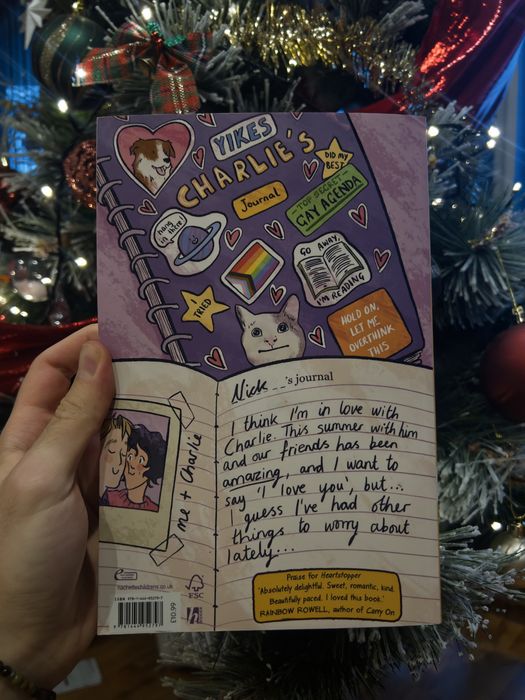 YIKES
CHARLIE'S
Journal
DID MY
BEST
TOP SECRET
GAY AGENDA
hang
in there!
GO AWAY,
I'M READING
I TRIED
HOLD ON,
LET ME
OVERTHINK
THIS
Nick 's journal
I think I'm in love with
Charlie. This summer with him
and our friends has been
amazing, and I want to
say 'I love you', but...
I guess I've had other
things to worry about
lately...
me + Charlie
Praise for Heartstopper
'Absolutely delightful. Sweet, romantic, kind.
Beautifully paced. I loved this book.'
RAINBOW ROWELL, author of Carry On
hachettechildrens.co.uk
FSC